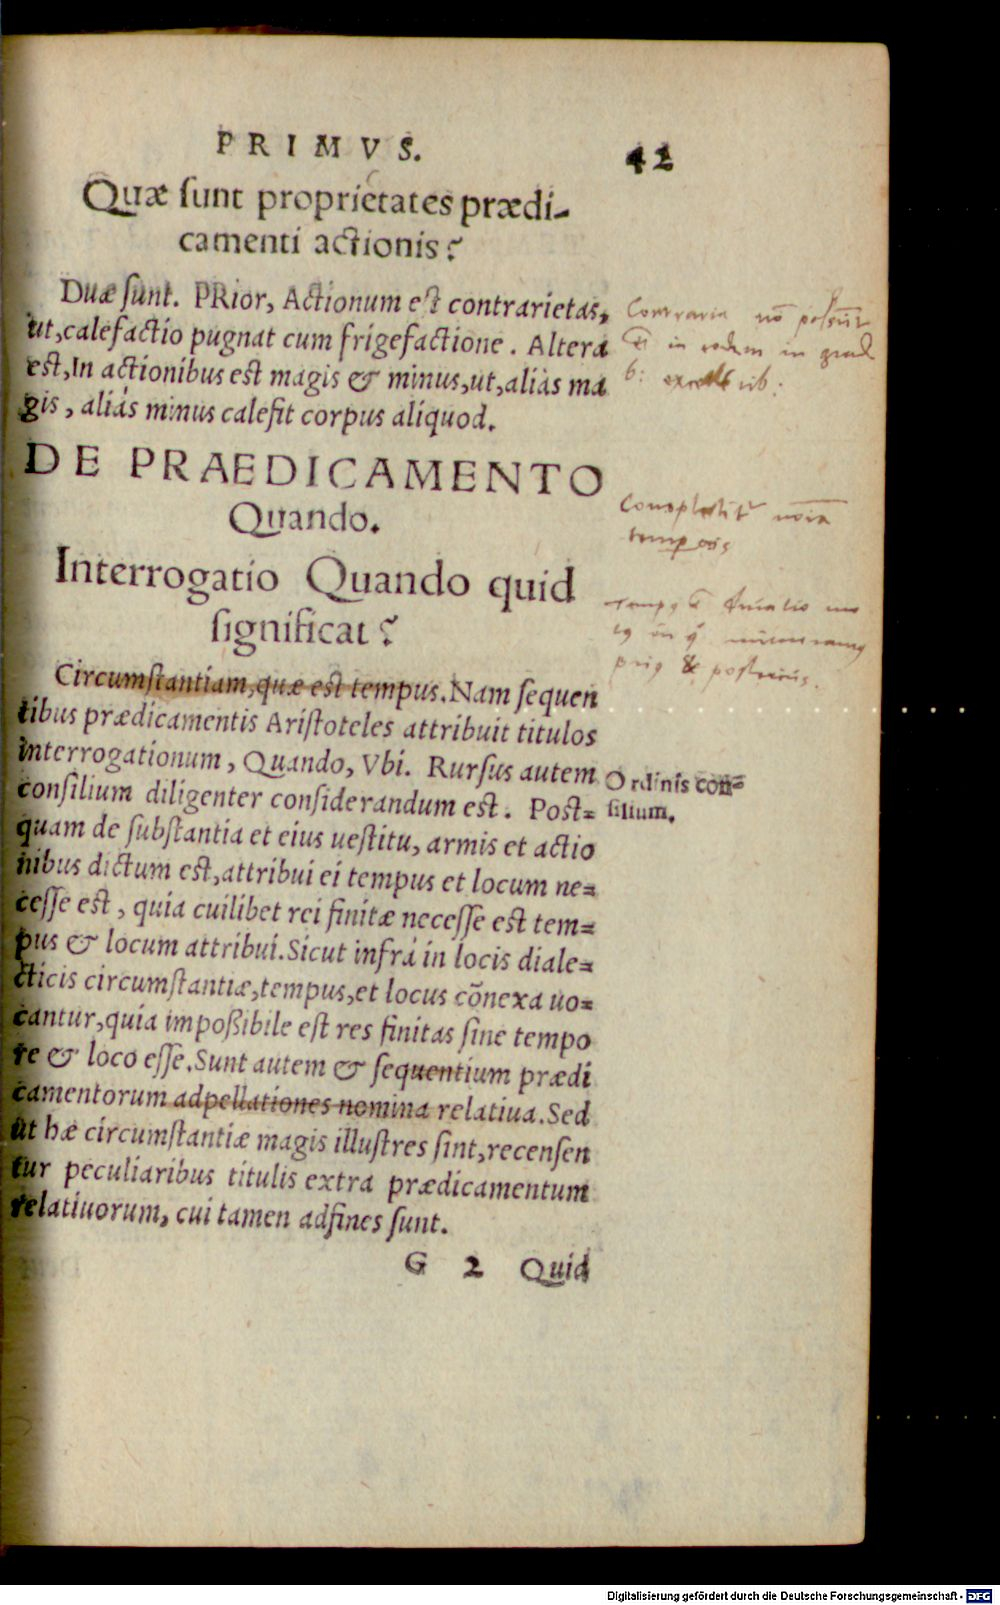 PRIMVS. 42
Quæ sunt proprietates prædi-
camenti actionis?
Duæ sunt. PRior, Actionum est contrarietas,
ut, calefactio pugnat cum frigefactione. Altera
est, In actionibus est magis & minus, ut, aliàs ma
gis, aliàs minus calefit corpus aliquod.
Contraria nō possūt
in eodem in grad
DE PRAEDICAMENTO
Quando.
Interrogatio Quando quid
significat?
temporis
prius & posterius.
Circumstantiam, quæ est tempus. Nam sequen
tibus prædicamentis Aristoteles attribuit titulos
interrogationum, Quando, Vbi. Rursus autem
consilium diligenter considerandum est. Post=
quam de substantia et eius uestitu, armis et actio
nibus dictum est, attribui ei tempus et locum ne=
cesse est, quia cuilibet rei finitæ necesse est tem=
pus & locum attribui. Sicut infrà in locis diale=
cticis circumstantiæ, tempus, et locus cōnexa uo=
cantur, quia impoßibile est res finitas sine tempo
re & loco esse. Sunt autem & sequentium prædi
camentorum adpellationes nomina relatiua. Sed
ut hæ circumstantiæ magis illustres sint, recensen
tur peculiaribus titulis extra prædicamentum
relatiuorum, cui tamen adfines sunt.
Ordinis con=
silium.
G 2 Quid
Digitalisierung gefördert durch die Deutsche Forschungsgemeinschaft - DFG